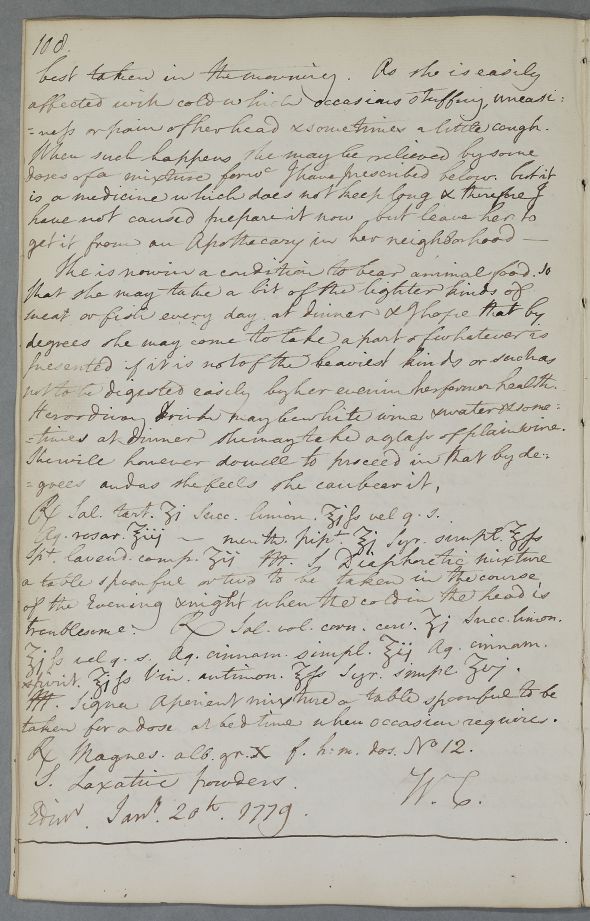 108.
best taken in the morning. As she is easily
affected with cold which occasions stuffing, uneasi:
=ness or pain of her head & sometimes a little cough.
When such happens she may be relieved by some
doses of a mixture for wc I have prescribed below. but it
is a medicine which does not keep long & therefore I
have not caused prepare it now but leave her to
get it from an Apothecary in her neighborhood —
She is now in a condition to bear animal food. so
that she may take a bit of the lighter kinds of
meat or fish every day at dinner & I hope that by
degrees she may come to take a part of whatever is
presented if it is not of the heaviest kinds or such as
not to be digested easily by her even in her former health.
Her ordinary drink may be white wine & water & some:
=times at dinner she may take a glass of plain wine.
She will however do well to proceed in that by de:
=grees and as she feels she can bear it,
℞ Sal. tart. ʒj Succ. limon. ℥jſs vel q. s.
Aq. rosar. ℥iij — menth. pipt. ℥j Syr. simpl. ℥ſs
Spt. lavend. comp. ʒij M. S. Diaphoretic mixture
a table spoonful or two to be taken in the course
of the Evening & night when the cold in the head is
troublesome. ℞ Sal. vol. corn. cerv. ʒj Succ. limon.
℥jſs vel q. s. Aq. cinnam. simpl. ℥ij Aq. cinnam.
spirit. ℥jſs Vin. antimon. ℥ſs Syr. simpl. ʒvj.
M. Signa Aperient mixture a table spoonful to be
taken for a dose at bed time when occasion requires.
℞ Magnes. alb. gr. X f. h: m. dos. No 12.
S. Laxative powders.
W. C.
Edinr. Janry. 20th. 1779.